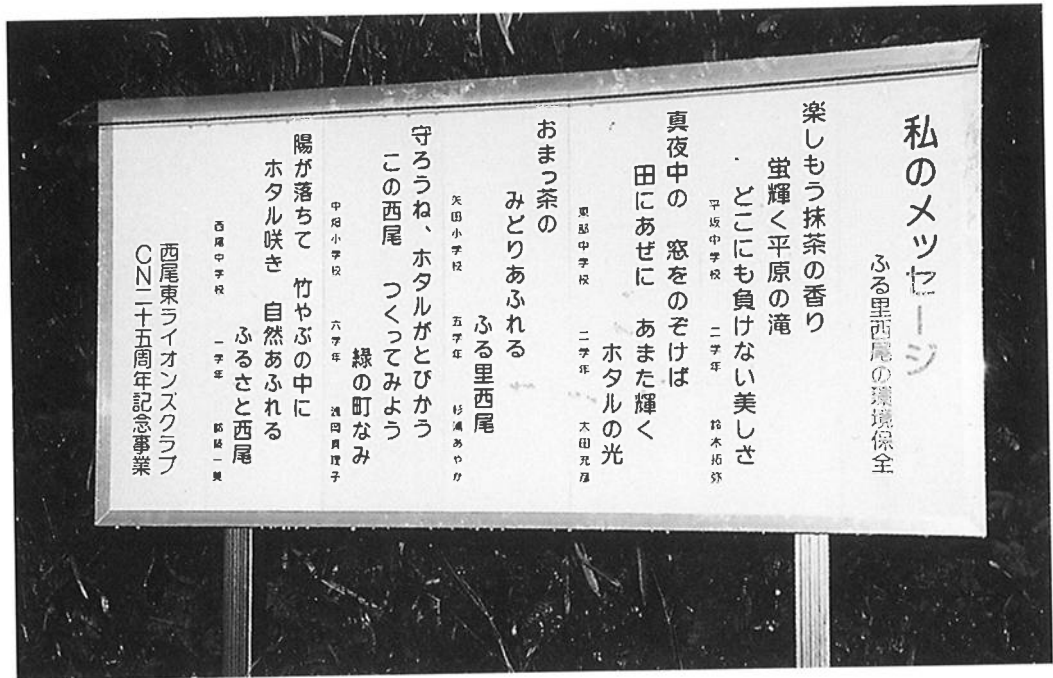 私のメッセージ
ふる里西尾の環境保全
楽しもう抹茶の香り
蛍輝く平原の滝
どこにも負けない美しさ
平坂中学校 二学年 鈴木拓弥
真夜中の 窓をのぞけば
田にあぜに あまた輝く
ホタルの光
東部中学校 二学年 太田充彦
おまっ茶の
みどりあふれる
ふる里西尾
矢田小学校 五学年 杉浦あやか
守ろうね、ホタルがとびかう
この西尾 つくってみよう
緑の町なみ
中畑小学校 六学年 浅岡真理子
陽が落ちて 竹やぶの中に
ホタル咲き 自然あふれる
ふるさと西尾
西尾中学校 一学年
西尾東ライオンズクラブ
CN二十五周年記念事業